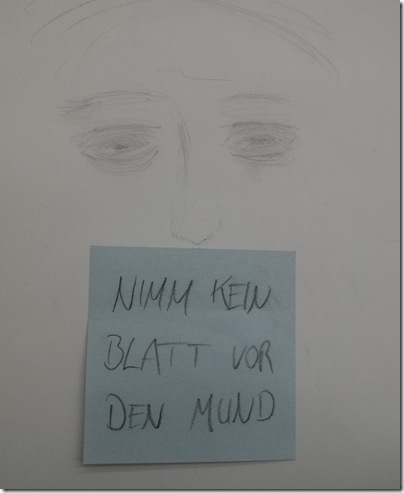 NIMM KEIN
BLATT VOR
DEN MUND